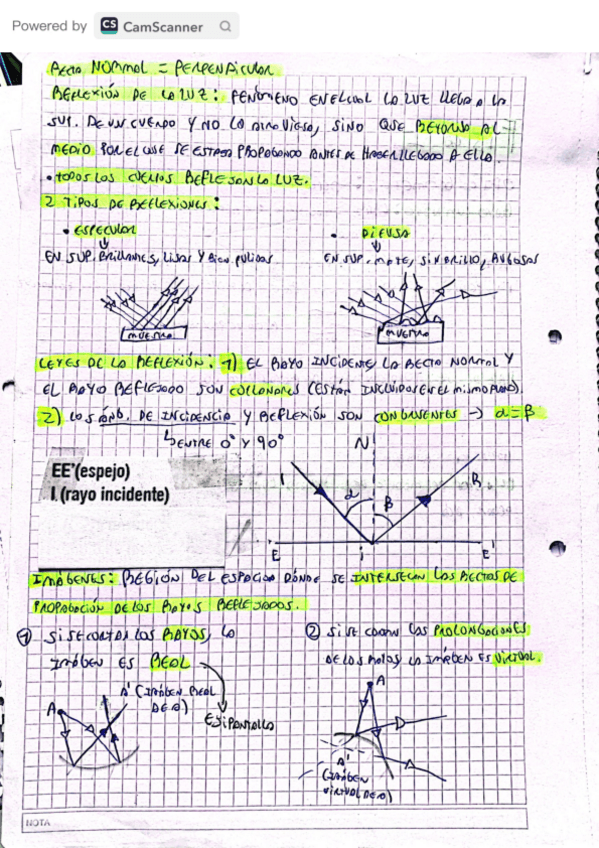 Powered by CS CamScanner
RECTA NORMAL = PERPENDICULAR
REFLEXIÓN DE LA LUZ: FENÓMENO EN EL CUAL LA LUZ LLEGA A LA
SUP. DE UN CUERPO Y NO LO ATRAVIESA, SINO QUE RETORNA AL
MEDIO POR EL QUE SE ESTABA PROPAGANDO ANTES DE HABER LLEGADO A ELLA.
• TODOS LOS CUERPOS REFLEJAN LA LUZ.
2 TIPOS DE REFLEXIONES:
• ESPECULAR
• DIFUSA
EN SUP. Brillantes, Lisas Y Bien pulidas
EN SUP. MATE, SIN BRILLO, RUGOSAS
MUESTRA
MUESTRA
LEYES DE LA REFLEXIÓN: 1) EL RAYO INCIDENTE, LA RECTA NORMAL Y
EL RAYO REFLEJADO SON COPLANARES (ESTÁN INCLUIDOS EN EL mismo PLANO).
2) LOS ÁNG. DE INCIDENCIA Y REFLEXIÓN SON CONGRUENTES → α = β
ENTRE 0° Y 90°
N
EE'(espejo)
I (rayo incidente)
I
α
β
R
E
i
E'
IMÁGENES: REGIÓN DEL ESPACIO DÓNDE SE INTERSECAN LAS RECTAS DE
PROPAGACIÓN DE LOS RAYOS REFLEJADOS.
1 SI SE CORTAN LOS RAYOS, LA
IMÁGEN ES REAL
2 SI SE CORTAN LAS PROLONGACIONES
DE LOS RAYOS LA IMÁGEN ES VIRTUAL.
A
A' (IMÁGEN REAL
DE A)
A
A'
(IMÁGEN
VIRTUAL DE A)
NOTA